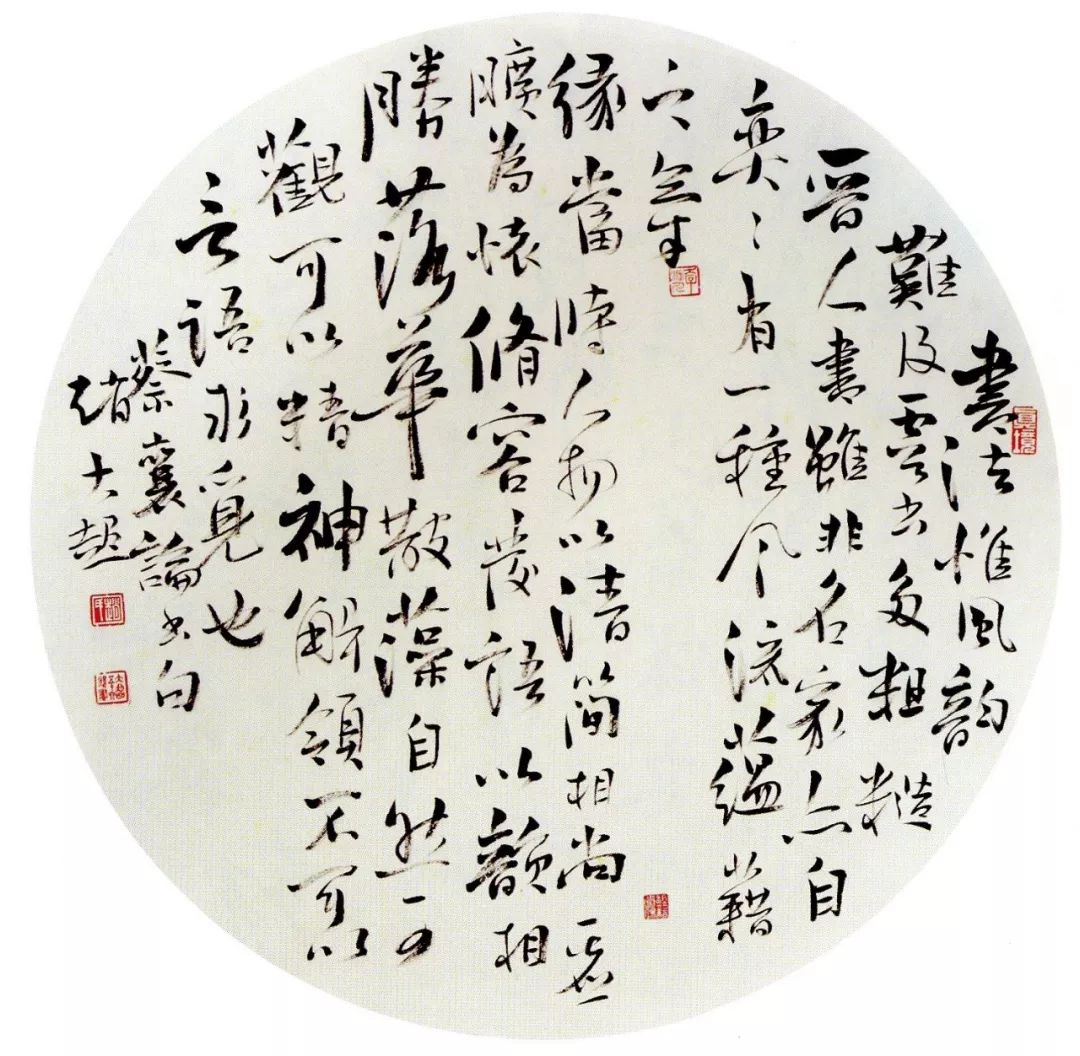 書法惟風韵
難及書多粗糙
晉人書雖非名家亦自
奕々有一種風流蘊藉
之氣
緣當時人物以清簡相尚虛
曠為懷脩容發語以韻相
勝落華散藻自然可
觀可以精神解領不可以
言語求覓也
蔡襄論書句
大